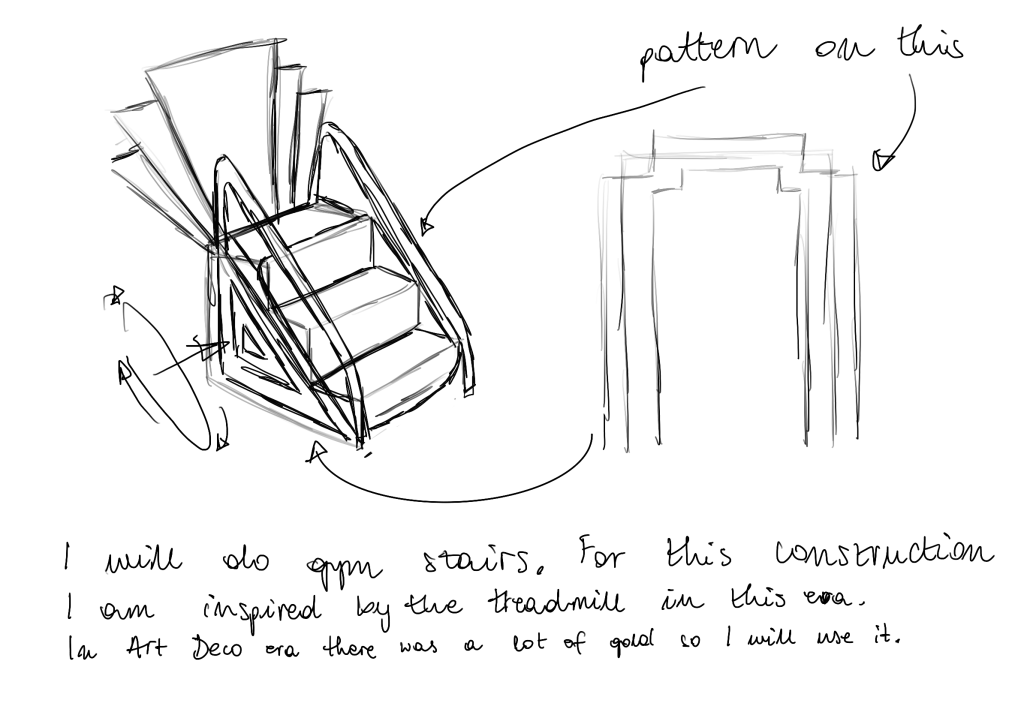 pattern on this
I will do gym stairs. For this construction
I am inspired by the treadmill in this era.
In Art Deco era there was a lot of gold so I will use it.